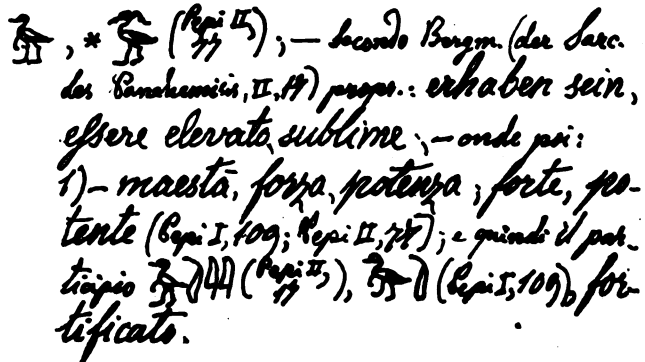 𓅡, * 𓅡 (Pepi II, 77); — secondo Bergm. (der Sarc.
des Panehemisis, II, 17) propr.: erhaben sein,
essere elevato, sublime; — onde poi:
1) – maestà, forza, potenza; forte, po-
tente (Pepi I, 109; Pepi II, 77); e quindi il par-
ticipio (Pepi II, 77), (Pepi I, 109), for-
tificato.